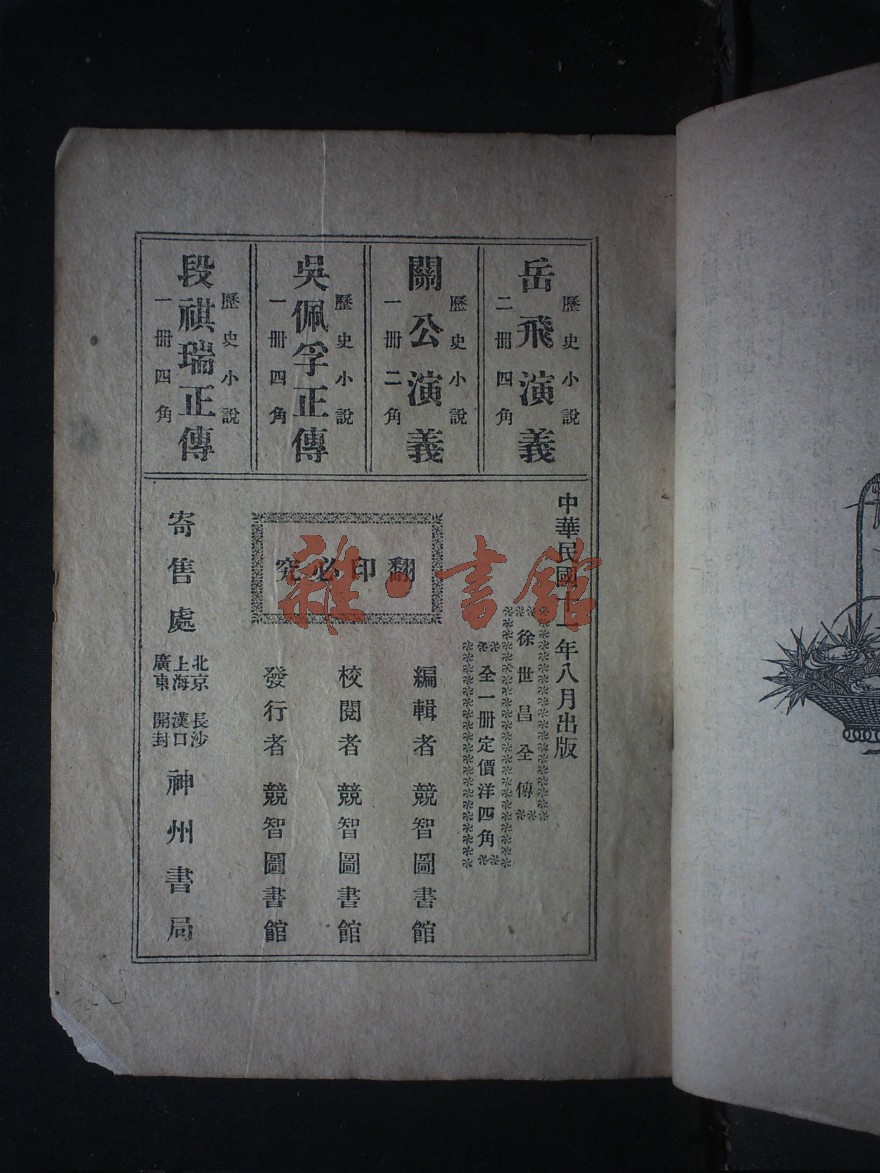 岳飛演義
歷史小說
二冊四角
關公演義
歷史小說
一冊二角
吳佩孚正傳
歷史小說
一冊四角
段祺瑞正傳
歷史小說
一冊四角
中華民國十一年八月出版
徐世昌全傳
全一冊定價洋四角
翻印必究
編輯者 競智圖書館
校閱者 競智圖書館
發行者 競智圖書館
寄售處
北京 長沙
上海 漢口
廣東 開封
神州書局
雜·書館